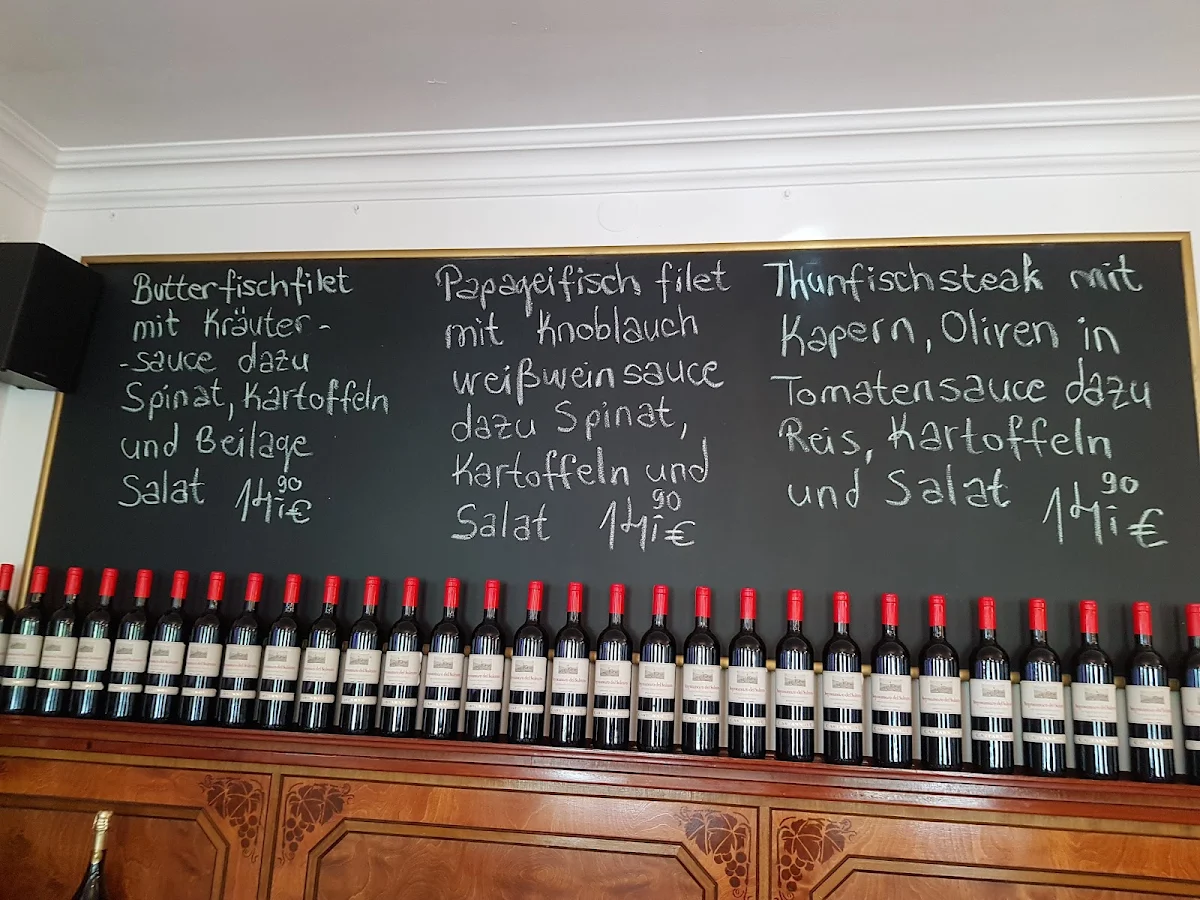 Butterfischfilet
mit Kräuter-
-sauce dazu
Spinat, Kartoffeln
und Beilage
Salat 14,90€
Papageifisch filet
mit Knoblauch
weißweinsauce
dazu Spinat,
Kartoffeln und
Salat 14,90€
Thunfischsteak mit
Kapern, Oliven in
Tomatensauce dazu
Reis, Kartoffeln
und Salat 14,90€